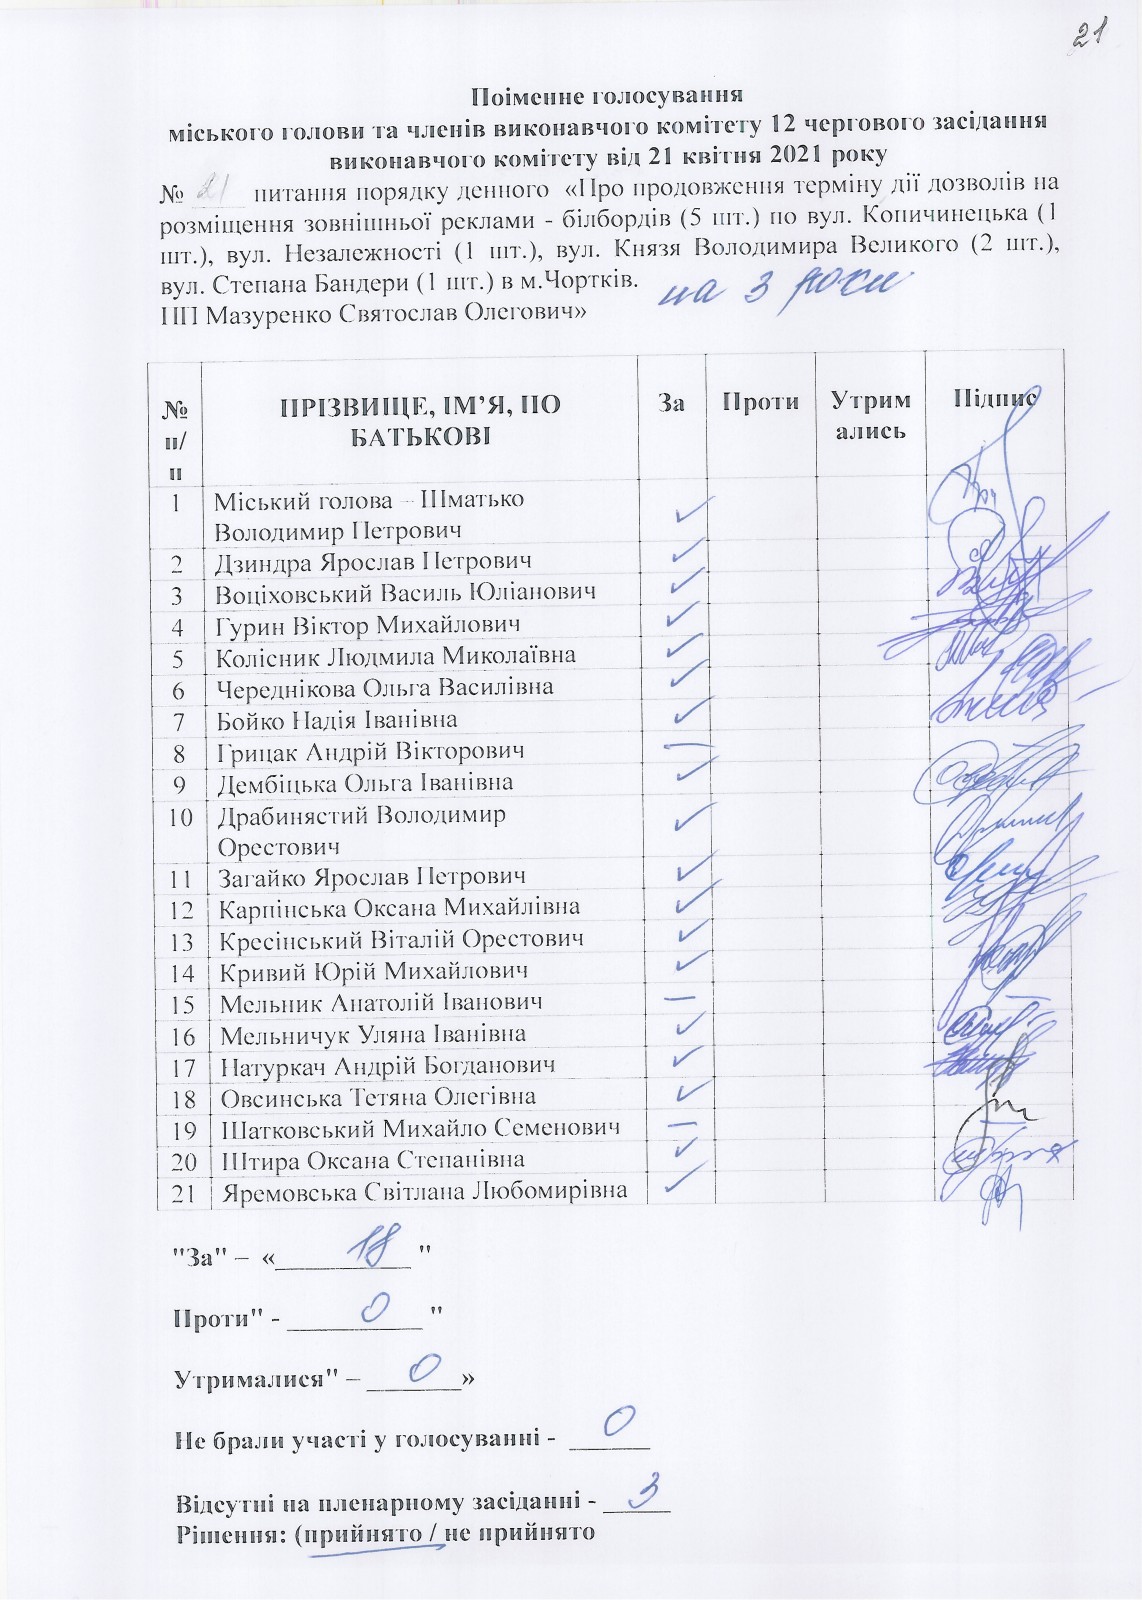 21
Поіменне голосування
міського голови та членів виконавчого комітету 12 чергового засідання
виконавчого комітету від 21 квітня 2021 року
№ 21 питання порядку денного «Про продовження терміну дії дозволів на
розміщення зовнішньої реклами - білбордів (5 шт.) по вул. Копичинецька (1
шт.), вул. Незалежності (1 шт.), вул. Князя Володимира Великого (2 шт.),
вул. Степана Бандери (1 шт.) в м.Чортків. на 3 роки
ПП Мазуренко Святослав Олегович»
№ п/п ПРІЗВИЩЕ, ІМ’Я, ПО БАТЬКОВІ За Проти Утримались Підпис
1 Міський голова – Шматько
Володимир Петрович ✓
2 Дзиндра Ярослав Петрович ✓
3 Воціховський Василь Юліанович ✓
4 Гурин Віктор Михайлович ✓
5 Колісник Людмила Миколаївна ✓
6 Череднікова Ольга Василівна ✓
7 Бойко Надія Іванівна ✓
8 Грицак Андрій Вікторович —
9 Дембіцька Ольга Іванівна ✓
10 Драбинястий Володимир
Орестович ✓
11 Загайко Ярослав Петрович ✓
12 Карпінська Оксана Михайлівна ✓
13 Кресінський Віталій Орестович ✓
14 Кривий Юрій Михайлович ✓
15 Мельник Анатолій Іванович —
16 Мельничук Уляна Іванівна ✓
17 Натуркач Андрій Богданович ✓
18 Овсинська Тетяна Олегівна ✓
19 Шатковський Михайло Семенович —
20 Штира Оксана Степанівна ✓
21 Яремовська Світлана Любомирівна ✓
"За" – «__________18 "
Проти" - __________0 "
Утрималися" – _______0»
Не брали участі у голосуванні - 0
Відсутні на пленарному засіданні - 3
Рішення: (прийнято / не прийнято